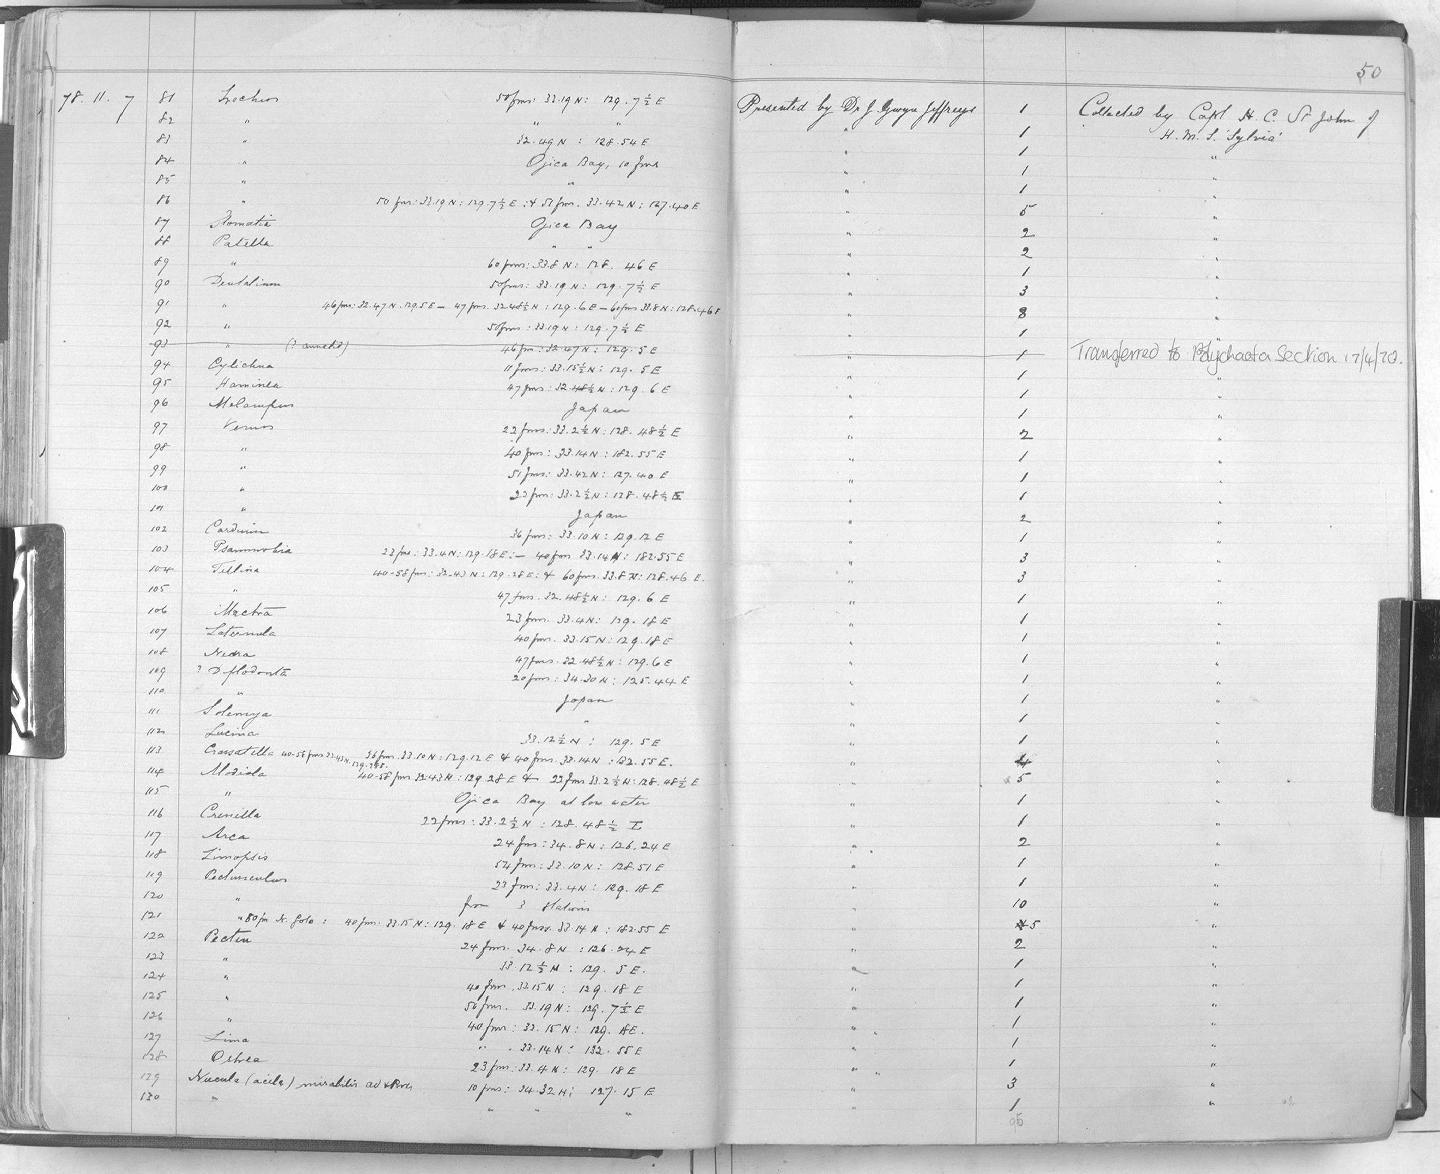 50
78. 11. 7 81 Trochus 50 fms: 33.19 N: 129. 7½ E Presented by Dr J. Gwyn Jeffreys 1 Collected by Capt H. C. St John of
82 " " " " 1 H. M. S. 'Sylvia'
83 " 32.49 N: 128.54 E " 1 "
84 " Ojica Bay, 10 fms " 1 "
85 " " " 1 "
86 " 50 fms: 33.19 N: 129.7½ E: & 51 fms. 33.42 N: 127.40 E " 5 "
87 Stomatia Ojica Bay " 2 "
88 Patella " " " 2 "
89 " 60 fms: 33.8 N: 128. 46 E " 1 "
90 Dentalium 50 fms: 33.19 N: 129. 7½ E " 3 "
91 " 46 fms: 32.47 N. 129.5 E — 47 fms. 32.48½ N: 129. 6 E — 60 fms 33.8 N: 128.46 E " 8 "
92 " 50 fms: 33.19 N: 129. 7½ E " 1 "
93 " (? annelid) 46 fm: 32.47 N: 129. 5 E 1 Transferred to Polychaeta Section 17/4/70.
94 Cylichna 11 fms: 33.15½ N: 129. 5 E " 1 "
95 Haminea 47 fms: 32.48½ N: 129. 6 E " 1 "
96 Melampus Japan " 1 "
97 Venus 22 fms: 33.2½ N: 128. 48½ E " 2 "
98 " 40 fms: 33.14 N: 132.55 E " 1 "
99 " 51 fms: 33.42 N: 127.40 E " 1 "
100 " 22 fms: 33.2½ N: 128. 48½ E " 1 "
101 " Japan " 2 "
102 Cardium 36 fm: 33.10 N: 129.12 E " 1 "
103 Psammobia 23 fms: 33.4 N: 129.18 E: — 40 fms 33.14 N: 132.55 E " 3 "
104 Tellina 40-58 fms: 32.43 N: 129.28 E: & 60 fms. 33.8 N: 128.46 E. " 3 "
105 " 47 fms. 32.48½ N: 129. 6 E " 1 "
106 Mactra 23 fms: 33.4 N: 129. 18 E " 1 "
107 Laternula 40 fms. 33.15 N: 129.18 E " 1 "
108 Neæra 47 fms: 32.48½ N: 129.6 E " 1 "
109 ? Diplodonta 20 fms: 34.30 N: 125.44 E " 1 "
110 " Japan " 1 "
111 Solemya " " 1 "
112 Lucina 33.12½ N: 129. 5 E " 1 "
113 Crassatella 40-58 fms 32.43 N. 129.28 E. 36 fms. 33.10 N: 129.12 E & 40 fms. 33.14 N: 132.55 E. " 4 "
114 Modiola 40-58 fms 32.43 N: 129.28 E & 22 fms 33.2½ N: 128.48½ E " 5 "
115 " Ojica Bay at low water " 1 "
116 Crenella 22 fms: 33.2½ N: 128. 48½ E " 1 "
117 Arca 24 fms: 34. 8 N: 126.24 E " 2 "
118 Limopsis 54 fm: 33.10 N: 128.51 E " 1 "
119 Pectunculus 23 fm: 33.4 N: 129. 18 E " 1 "
120 " from 3 stations " 10 "
121 " 80 fm N. Goto: 40 fms. 33.15 N: 129. 18 E & 40 fms. 33.14 N: 132.55 E " 5 "
122 Pecten 24 fms. 34.8 N: 126.24 E " 2 "
123 " 33.12½ N: 129. 5 E. " 1 "
124 " 40 fms. 33.15 N: 129. 18 E " 1 "
125 " 50 fms. 33.19 N: 129. 7½ E " 1 "
126 " 40 fms: 33. 15 N: 129. 18 E. " 1 "
127 Lima " . 33.14 N: 132. 55 E " 1 "
128 Ostrea 23 fms: 33.4 N: 129. 18 E " 1 "
129 Nucula (acila) mirabilis ad & Rve 10 fms: 34.32 N: 127. 15 E " 3 "
130 " " " " " 1 "
95